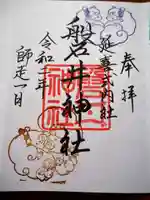 奉拝
延喜式内社
磐井神社
令和二年
師走一日